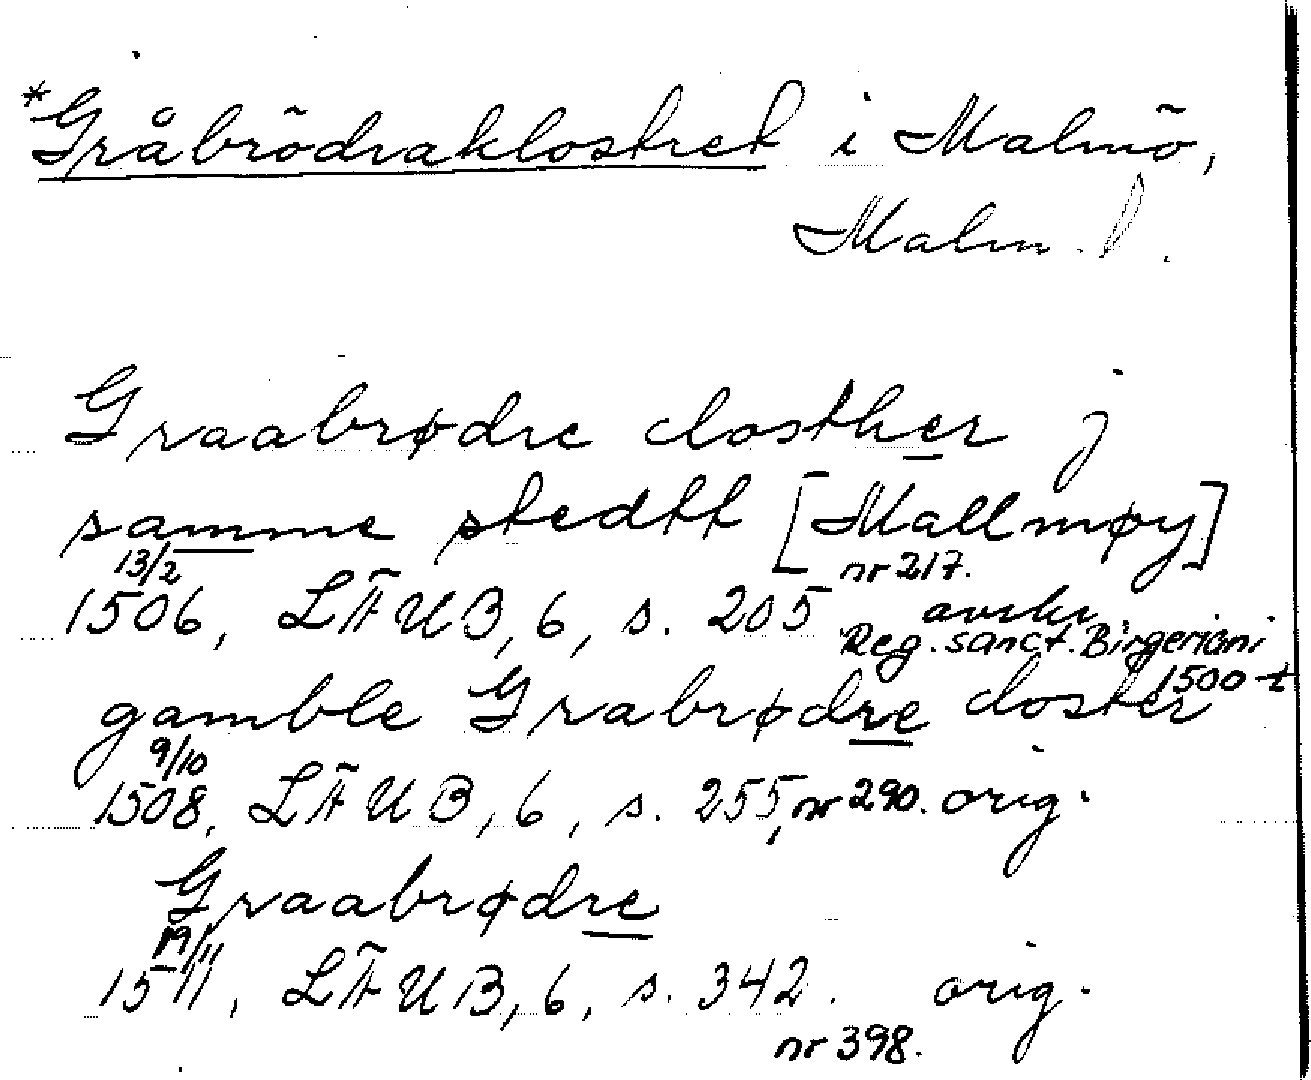 *Gråbrödraklostret i Malmö,
Malm.
Graabrødre closther j
samme stedtt [Mallmøy]
13/2 nr 217.
1506, LÄUB, 6, s. 205 avskr
Reg. sanct. Birgeriani
1500-t
gamble Grabrødre closter
9/10
1508, LÄUB, 6, s. 255, nr 290. orig.
Graabrødre
19/11
1511, LÄUB, 6, s. 342. orig.
nr 398.